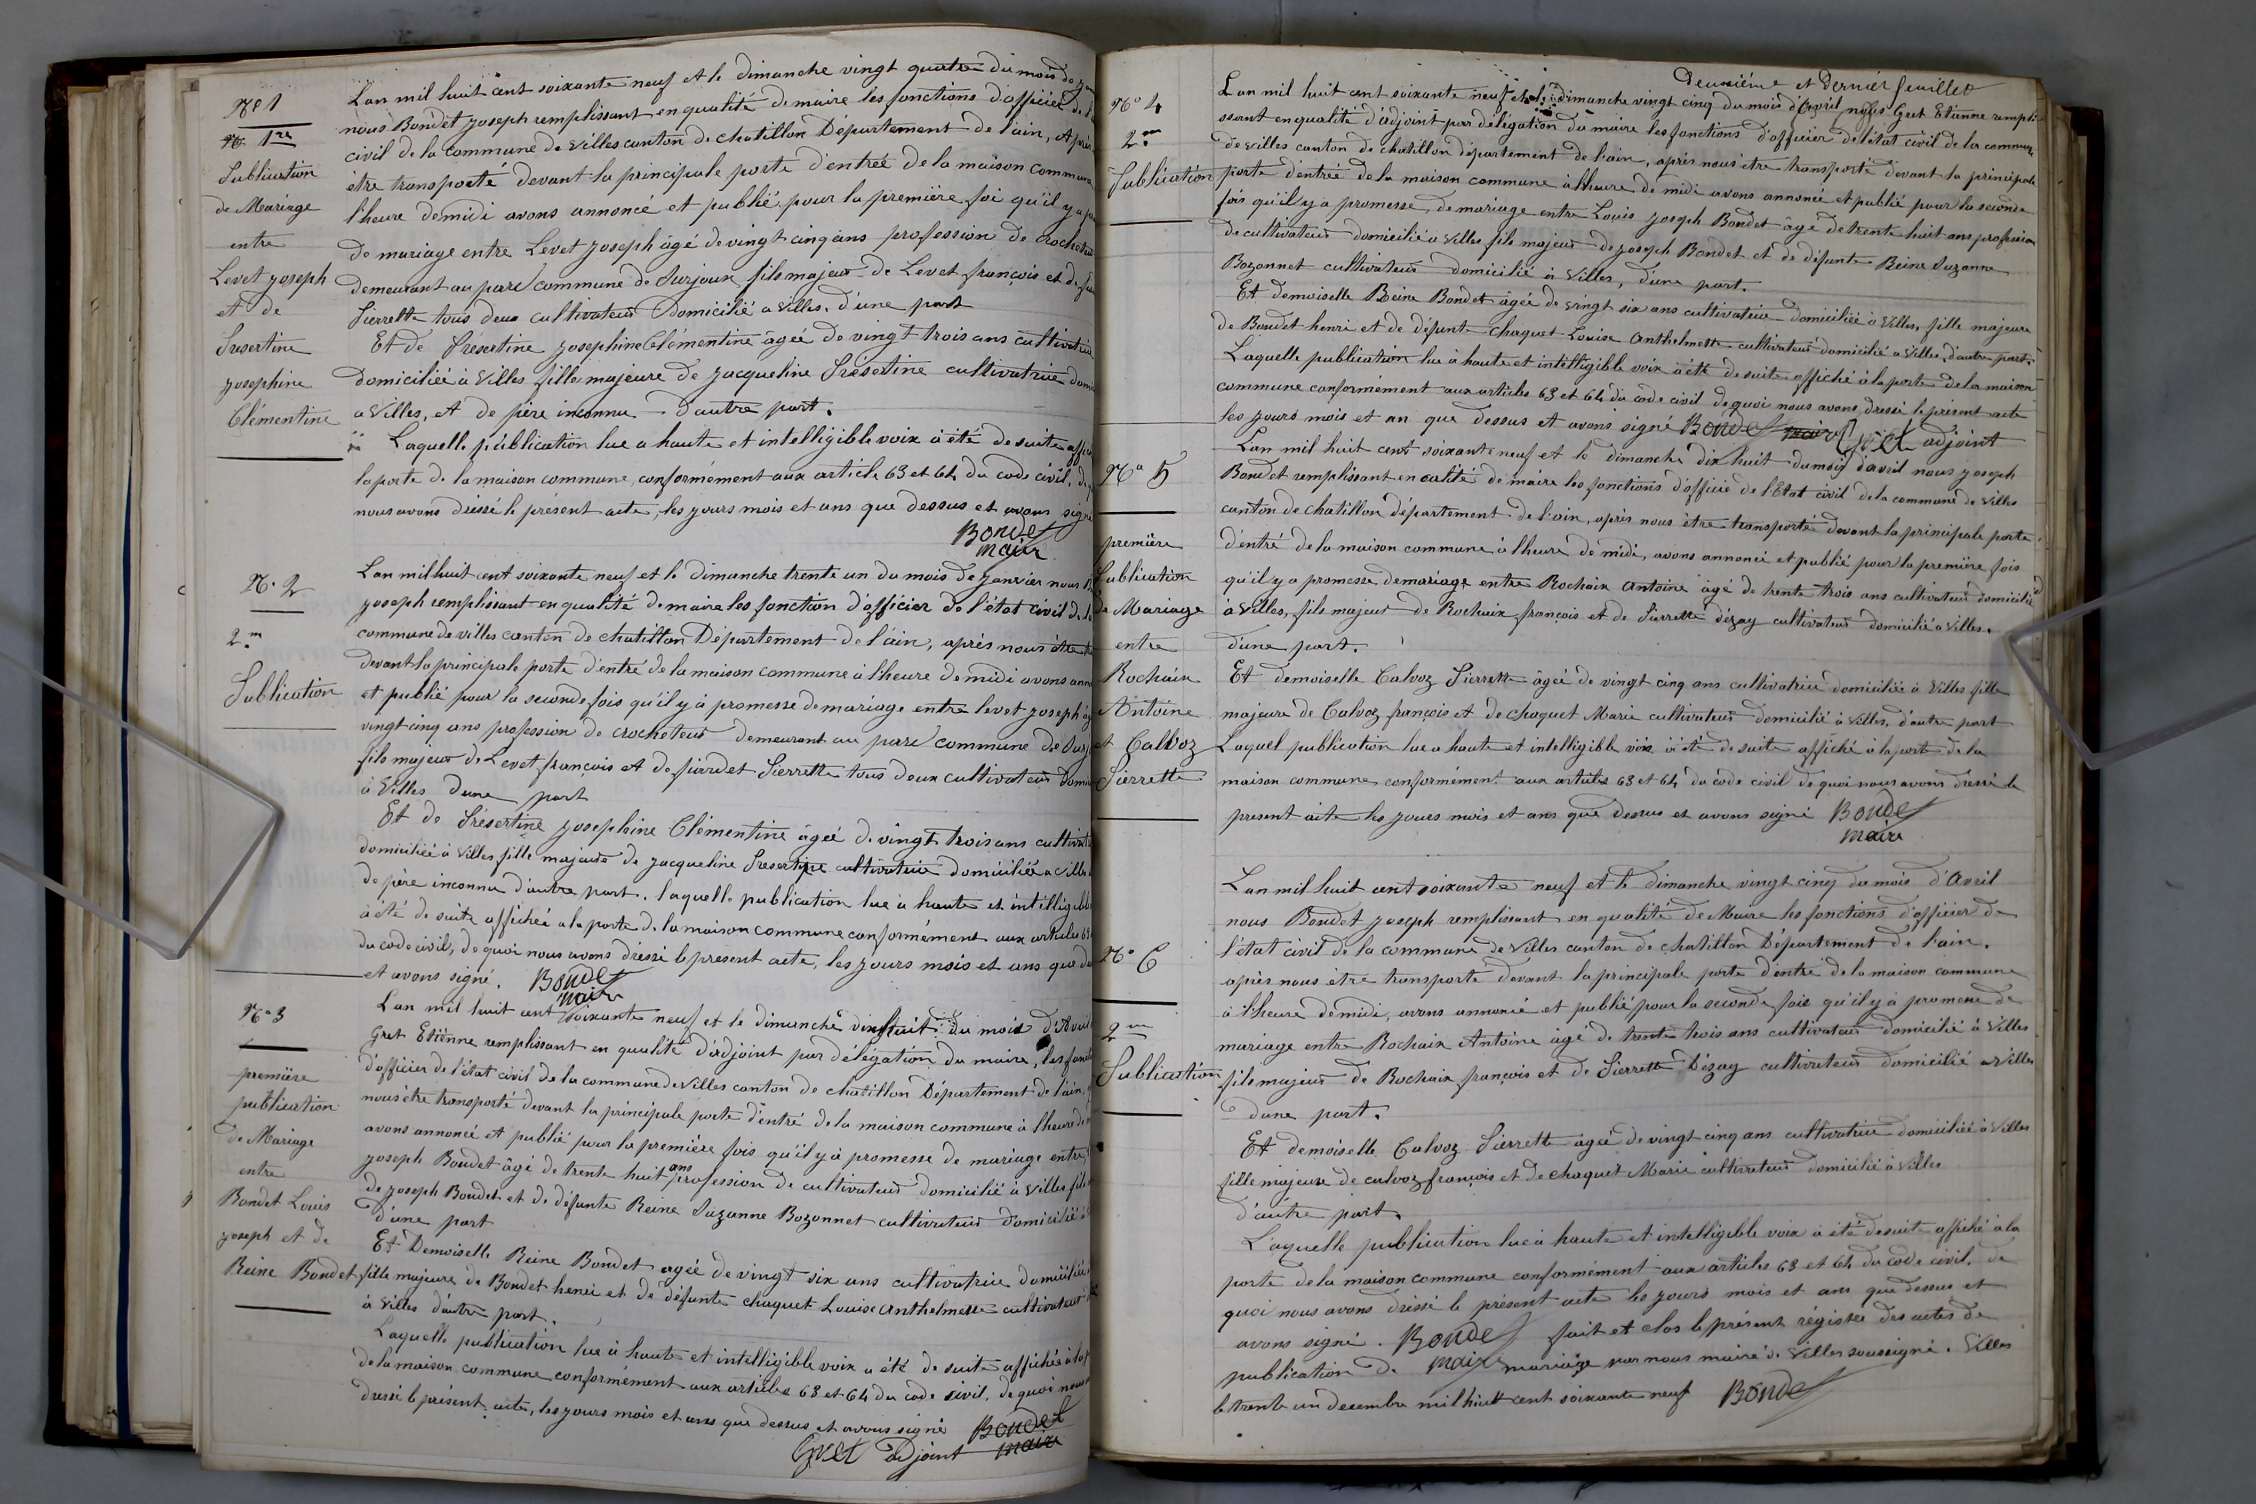 No 1
1re
Publication
de Mariage
entre
Levet joseph
et de
Presertine
josephine
Clémentine
L'an mil huit cent soixante neuf et le dimanche vingt quatre du mois de
nous Boudet joseph remplissant en qualité de maire les fonctions d'officier de
civil de la commune de Villes canton de chatillon Département de l'ain, Après
être transporté devant la principale porte d'entrée de la maison commune
l'heure de midi avons annoncé et publié pour la première foi qu'il y a
de mariage entre Levet joseph âgé de vingt cinq ans profession de crocheteur
demeurant au parc commune de Surjoux fils majeur de Levet françois et de
Pierrette tous deux cultivateur Domicilié a Villes, d'une part
Et de Presertine josephine Clémentine âgée de vingt trois ans cultivatrice
domiciliée à Villes fille majeure de jacqueline Présertine cultivatrice
a Villes, et de père inconnu d'autre part.
Laquelle publication lue a haute et intelligible voix à été de suite
la porte de la maison commune, conformément aux article 63 et 64 du code civil,
nous avons dréssé le présent acte, les jours mois et ans que dessus et avons signé
Boudet
maire
No 2
2me
Publication
L'an mil huit cent soixante neuf et le dimanche trente un du mois de janvier nous
joseph remplissant en qualité de maire les fonction d'officier de l'état civil de la
commune de villes canton de chatillon Département de l'ain, après nous être
devant la principale porte d'entré de la maison commune à l'heure de midi avons
et publié pour la seconde fois qu'il y à promesse de mariage entre levet joseph
vingt cinq ans profession de crocheteur demeurant au parc commune de
fils majeur de Levet françois et de Pierrette tous deux cultivateur
à Villes d'une part
Et de Présertine josephine Clémentine âgée de vingt trois ans
domiciliée à Villes fille majeure de jacqueline Presertine cultivatrice domiciliée a Villes
de père inconnu d'autre part. laquelle publication lue à haute et intelligible
à été de suite affichée a la porte de la maison commune conformément aux articles 63
du code civil, de quoi nous avons dréssé le présent acte, les jours mois et ans que
et avons signé. Boudet
maire
No 3
première
publication
de Mariage
entre
Boudet Louis
joseph et de
Reine Boudet
L'an mil huit cent soixante neuf et le dimanche dix huit du mois d'Avril
Gret Etiènne remplissant en qualité d'adjoint par délégation du maire, les
d'officier de l'état civil de la commune de Villes canton de chatillon Département de l'ain,
nous être transporté devant la principale porte d'entré de la maison commune à l'heure de
avons annoncé et publié pour la première fois qu'il y à promesse de mariage entre
joseph Boudet âgé de trente huit ans profession de cultivateur domicilié à Villes fils
de joseph Boudet et de défunte Reine Suzanne Bozonnet cultivateur domicilié à
d'une part
Et Demoiselle Reine Boudet agée de vingt six ans cultivatrice domiciliée
fille majeure de Boudet henri et de défunte chaquet Louise Anthelmette cultivateur
à Villes d'autre part.
Laquelle publication lue à haute et intelligible voix a été de suite affichée à la
de la maison commune conformément aux articles 63 et 64 du code civil. de quoi nous
dressé le présent acte, les jours mois et ans que dessus et avons signé Boudet
Gret adjoint maire
Deuxième et dernier feuillet
No 4
2me
Publication
L'an mil huit cent soixante neuf et le dimanche vingt cinq du mois d'Avril nous Gret Etienne rempli
ssant en qualité d'adjoint par délégation du maire les fonctions d'officier de l'état civil de la commune
de Villes canton de chatillon département de l'ain, après nous être transporté devant la principale
porte d'entrée de la maison commune à l'heure de midi avons annoncé et publié pour la seconde
fois qu'il y a promesse, de mariage entre Louis joseph Boudet âgé de trente huit ans profession
de cultivateur domicilié à Villes fils majeur de joseph Boudet et de défunte Reine Suzanne
Bozonnet cultivateur domicilié à Villes, d'une part.
Et demoiselle Reine Boudet âgée de vingt six ans cultivatrice domiciliée à Villes, fille majeure
de Boudet henri et de défunte Chaquet Louise Anthelmette cultivateur domicilié a Villes, d'autre part.
Laquelle publication lue à haute et intelligible voix à été de suite affiché à la porte de la maison
commune conformément aux articles 63 et 64 du code civil de quoi nous avons dressé le présent acte
les jours mois et an que dessus et avons signé Boudet maire Gret adjoint
No 5
première
Publication
de Mariage
entre
Rochaix
Antoine
et Calvoz
Pierrette
L'an mil huit cent soixante neuf et le dimanche dix huit du mois d'avril nous joseph
Boudet remplissant en calité de maire les fonctions d'officié de l'Etat civil de la commune de Villes
canton de chatillon département de l'ain, après nous être transporté devant la principale porte
d'entré de la maison commune à l'heure de midi, avons annoncé et publié pour la première fois
qu'il y a promesse de mariage entre Rochaix Antoine âgé de trente trois ans cultivateur domicilié
à Villes, fils majeur de Rochaix françois et de Pierrette Dézay cultivateur domicilié a Villes.
d'une part.
Et demoiselle Calvoz Pierrette âgée de vingt cinq ans cultivatrice domiciliée à Villes fille
majeure de Calvoz françois et de chaquet Marie cultivateur domicilié à Villes, d'autre part
Laquel publication lue a haute et intelligible voix à été de suite affiché à la porte de la
maison commune conformément aux articles 63 et 64 du code civil de quoi nous avons dréssé le
present acte les jours mois et ans que dessus et avons signé Boudet
maire
No 6
2me
Publication
L'an mil huit cent soixante neuf et le dimanche vingt cinq du mois d'Avril
nous Boudet joseph remplissant en qualité de Maire les fonctions d'officier de
l'état civil de la commune de Villes canton de chatillon Département de l'ain.
après nous être transporté devant la principale porte d'entré de la maison commune
à l'heure de midi, avons annoncé et publié pour la seconde fois qu'il y à promesse de
mariage entre Rochaix Antoine âgé de trente trois ans cultivateur domicilié à Villes
fils majeur de Rochaix françois et de Pierrette Dézay cultivateur domicilié a Villes
d'une part.
Et demoiselle Calvoz Pierrette âgée de vingt cinq ans cultivatrice domiciliée à Villes
fille majeure de calvoz françois et de chaquet Marie cultivateur domicilié à Villes
d'autre part.
Laquelle publication lue à haute et intelligible voix à été de suite affiché à la
porte de la maison commune conformément aux articles 63 et 64 du code civil. de
quoi nous avons dréssé le présent acte les jours mois et ans que dessus et
avons signé. Boudet fait et clos le présent régistre des actes de
publication de maire mariage par nous maire de Villes soussigné. Villes
le trente un decembre mil huit cent soixante neuf Boudet